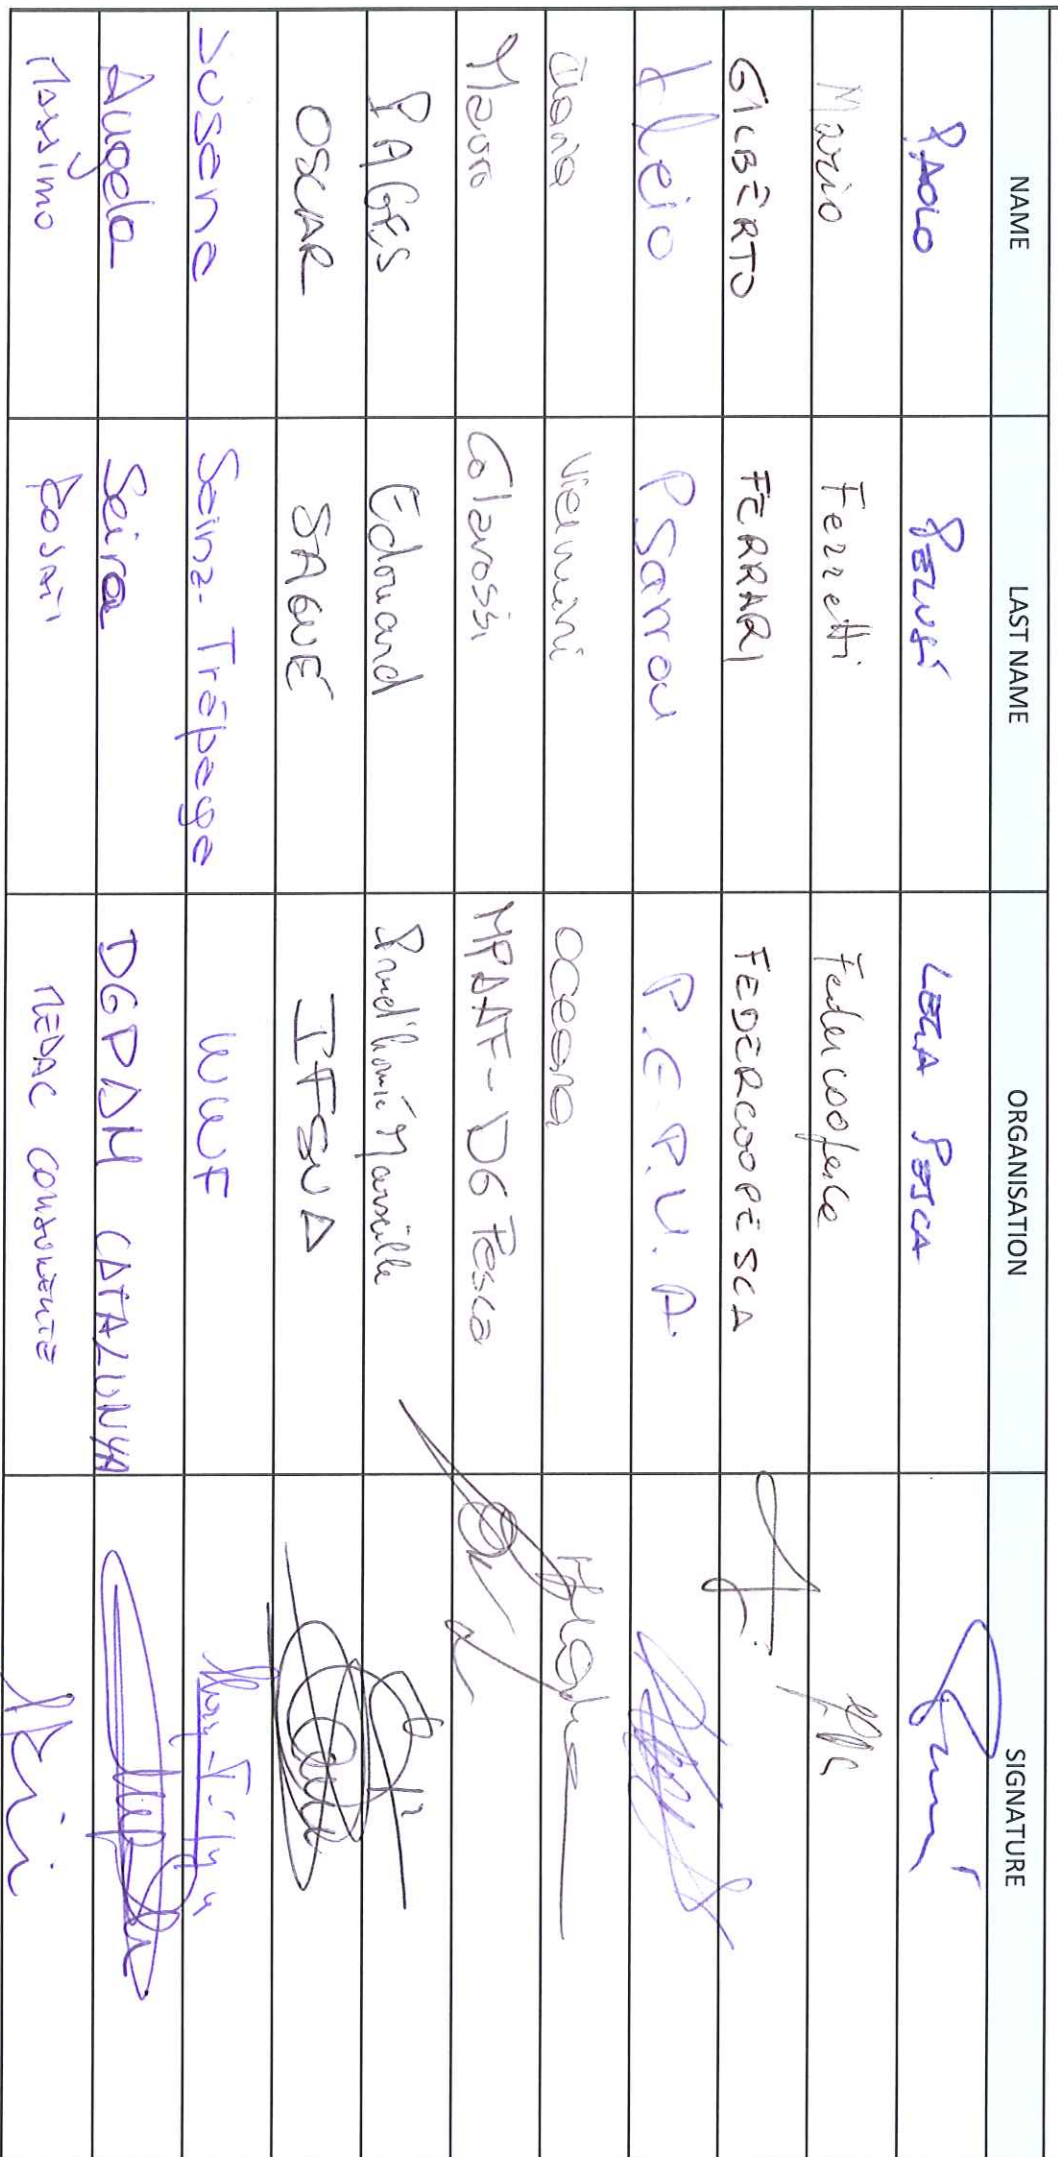 NAME LAST NAME ORGANISATION SIGNATURE
PAOLO PELUSÍ LEGA PESCA
Mario Ferretti Federcoopesca
GILBERTO FERRARI FEDERCOOPESCA
Psarrou P.E.P.M.A.
Vielmini oceana
Mauro Colarossi MPAAF - DG Pesca
PAGES Edouard Prud'homie Marseille
OSCAR SAGUE IFSUA
Susana Sainz-Trapaga WWF
Angela Seira DGPAM CATALUNYA
Massimo MEDAC CONSULENTE